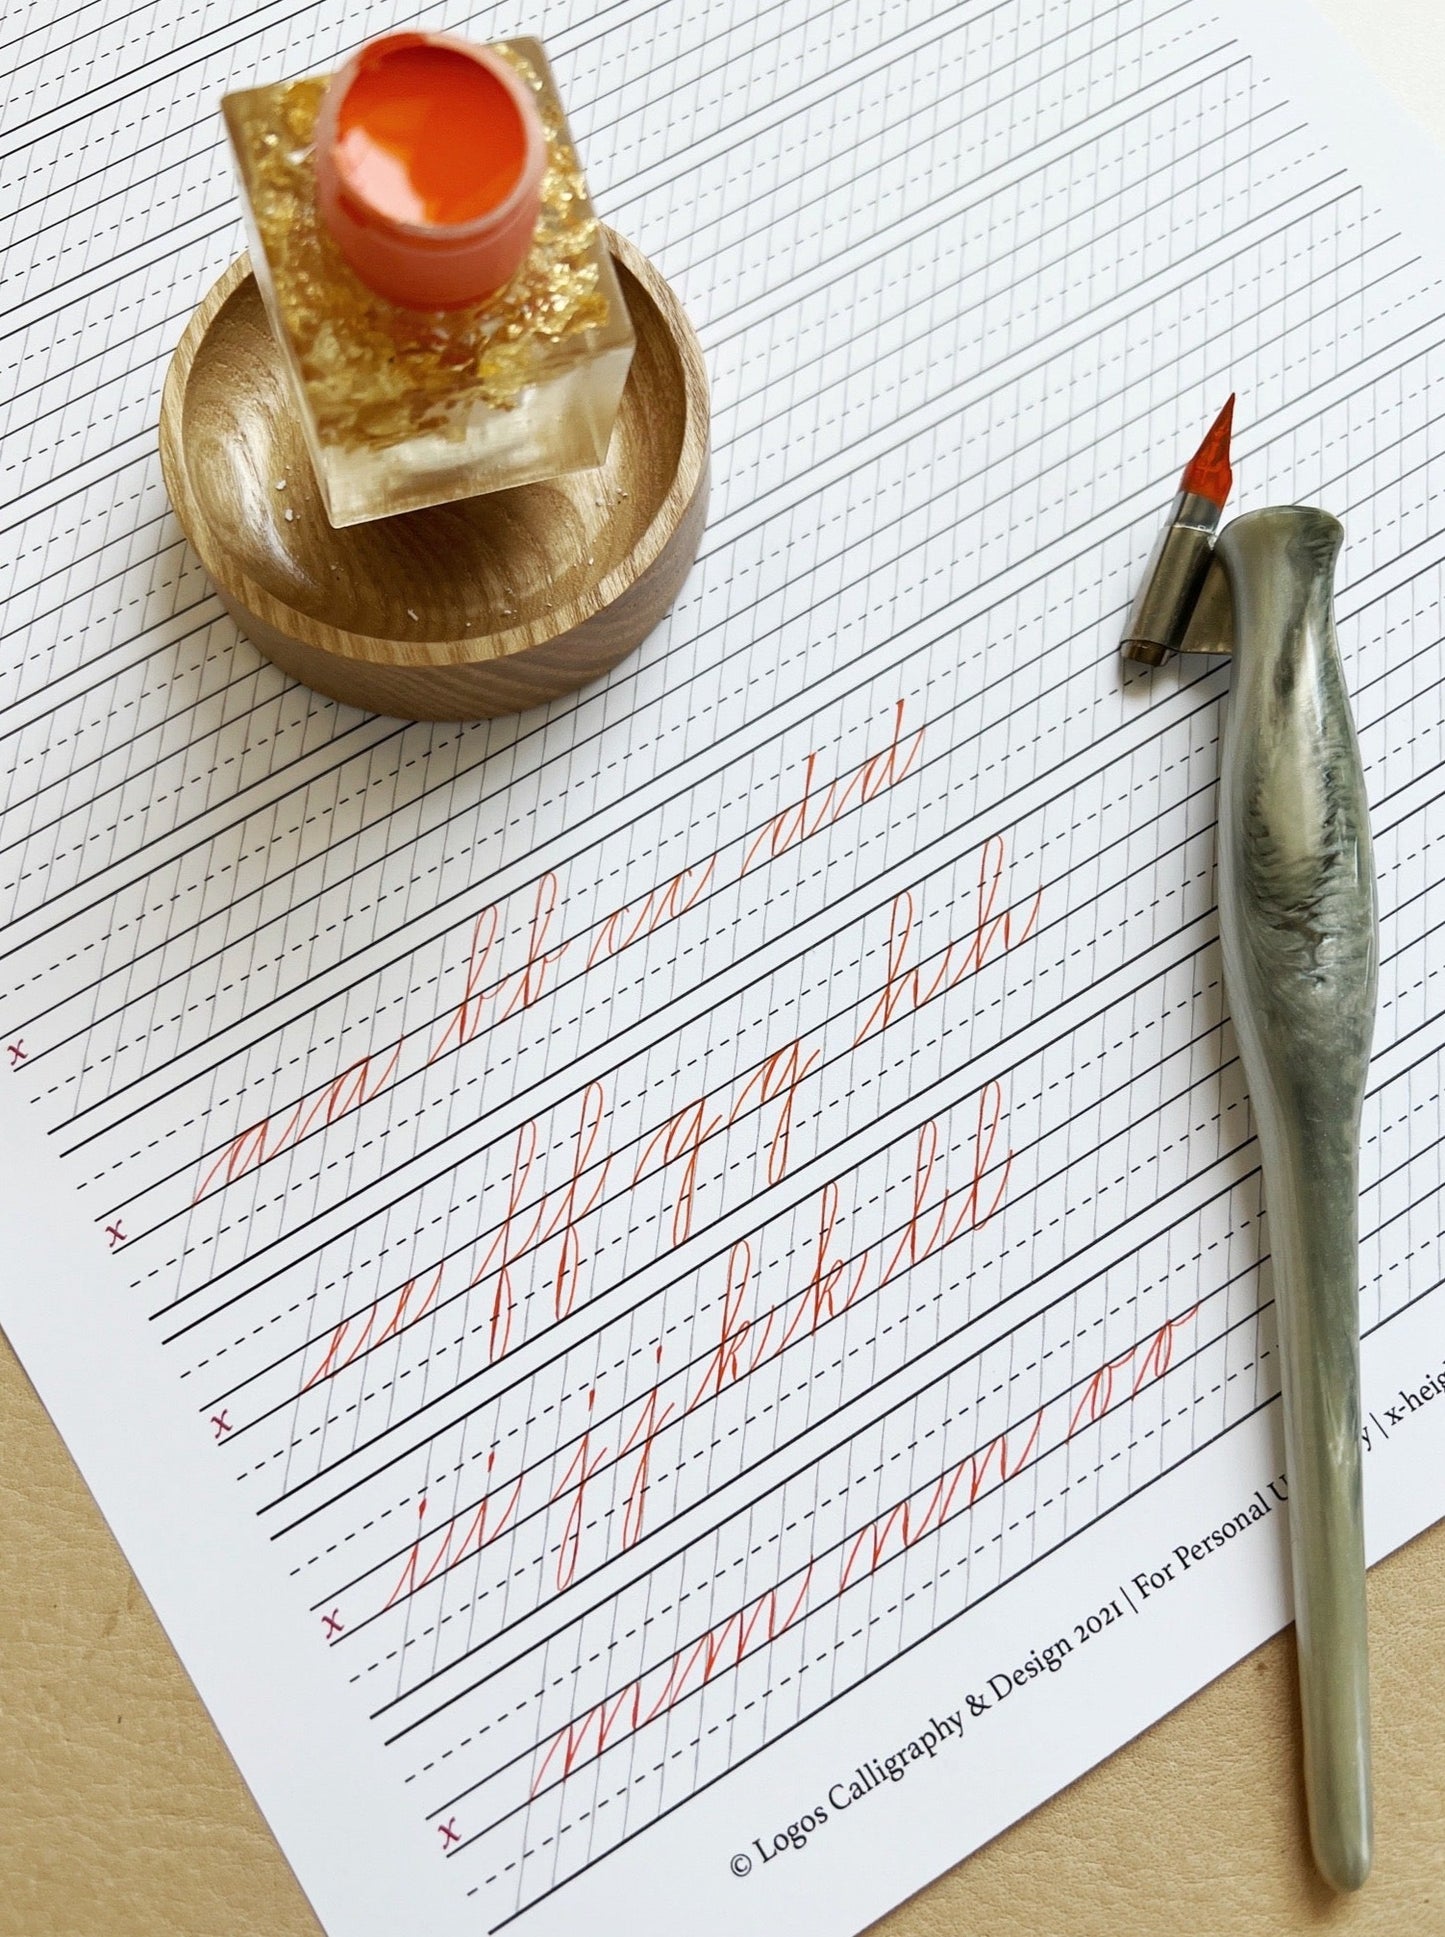 x
x aa bb cc dd
x ee ff gg hh
x ii jj kk ll
x mm nn oo
© Logos Calligraphy & Design 2021 | For Personal U y | x-heig